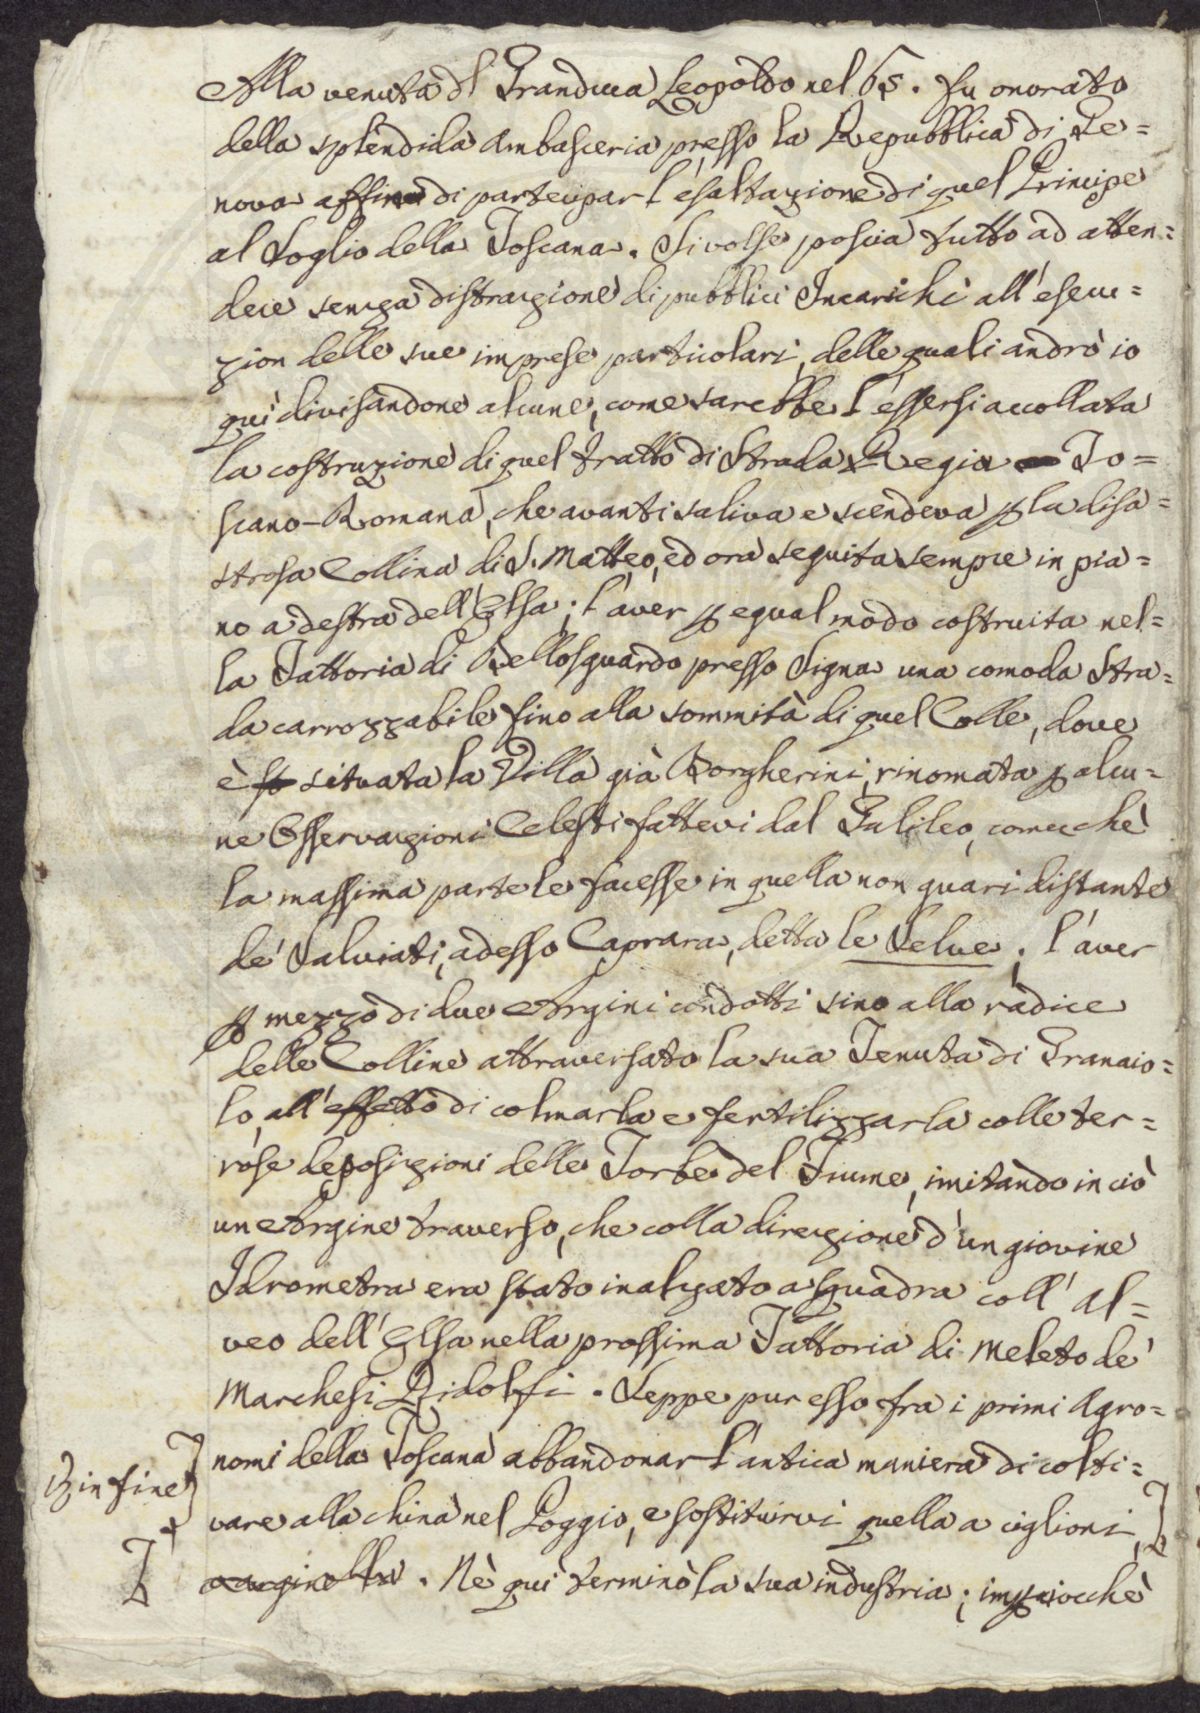 Alla venuta dl Granduca Leopoldo nel 65. fu onorato
della splendida Ambasceria presso la Repubblica di Ge=
nova affine di partecipar l'esaltazione di quel Principe
al Soglio della Toscana. Si volse poscia tutto ad atten=
dere senza distrazione di pubblici Incarichi all'esecu=
zion delle sue imprese particolari, delle quali andrò io
quì divisandone alcune, come sarebbe l'essersi accollata
la costruzione di quel tratto di Strada Regia To=
scano-Romana, che avanti saliva e scendeva p la disa=
strosa Collina di S. Matteo, ed ora seguita sempre in pia=
no a destra dell'Elsa; l'aver p egual modo costruita nel=
la Fattoria di Bellosguardo presso Signa una comoda Stra=
da carrozzabile fino alla sommità di quel Colle, dove
è situata la Villa già Borgherini, rinomata p alcu=
ne Osservazioni Celesti fattevi dal Galileo, comecchè
la massima parte le facesse in quella non guari distante
de' Salviati, adesso Caprara, detta le Selve; l'aver
p mezzo di due Argini condotti sino alla radice
delle Colline attraversato la sua Tenuta di Granaio=
lo, all'effetto di colmarla e fertilizzarla colle ter=
rose deposizioni delle Torbe del Fiume, imitando in ciò
un Argine traverso, che colla direzione d'un giovine
Idrometra era stato inalzato a squadra coll' Al=
veo dell'Elsa nella prossima Fattoria di Meleto de'
Marchesi Ridolfi. Seppe pur esso fra i primi Agro=
nomi della Toscana abbandonar l'antica maniera di colti=
in fine
vare alla china nel Poggio, e sostituirvi quella a ciglioni,
. Nè quì terminò la sua industria; impciocchè